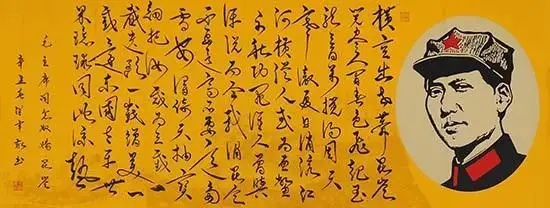 横空出世莽昆崙
阅尽人间春色飞起玉
龙三百万搅得周天
寒彻夏日消溶江
河横溢人或为鱼鳖
千秋功罪谁人曾与
评说而今我谓昆仑
不要这高不要这多
雪安得倚天抽宝
剑把汝裁为三截一
截遗欧一截赠美一
截还东国太平世
界环球同此凉热
毛主席词念奴娇昆仑
辛丑春 书